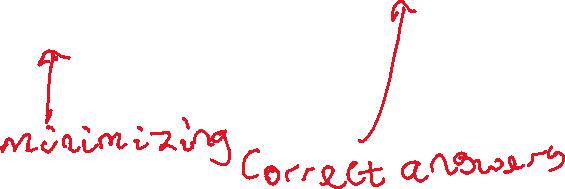 minimizing correct answers